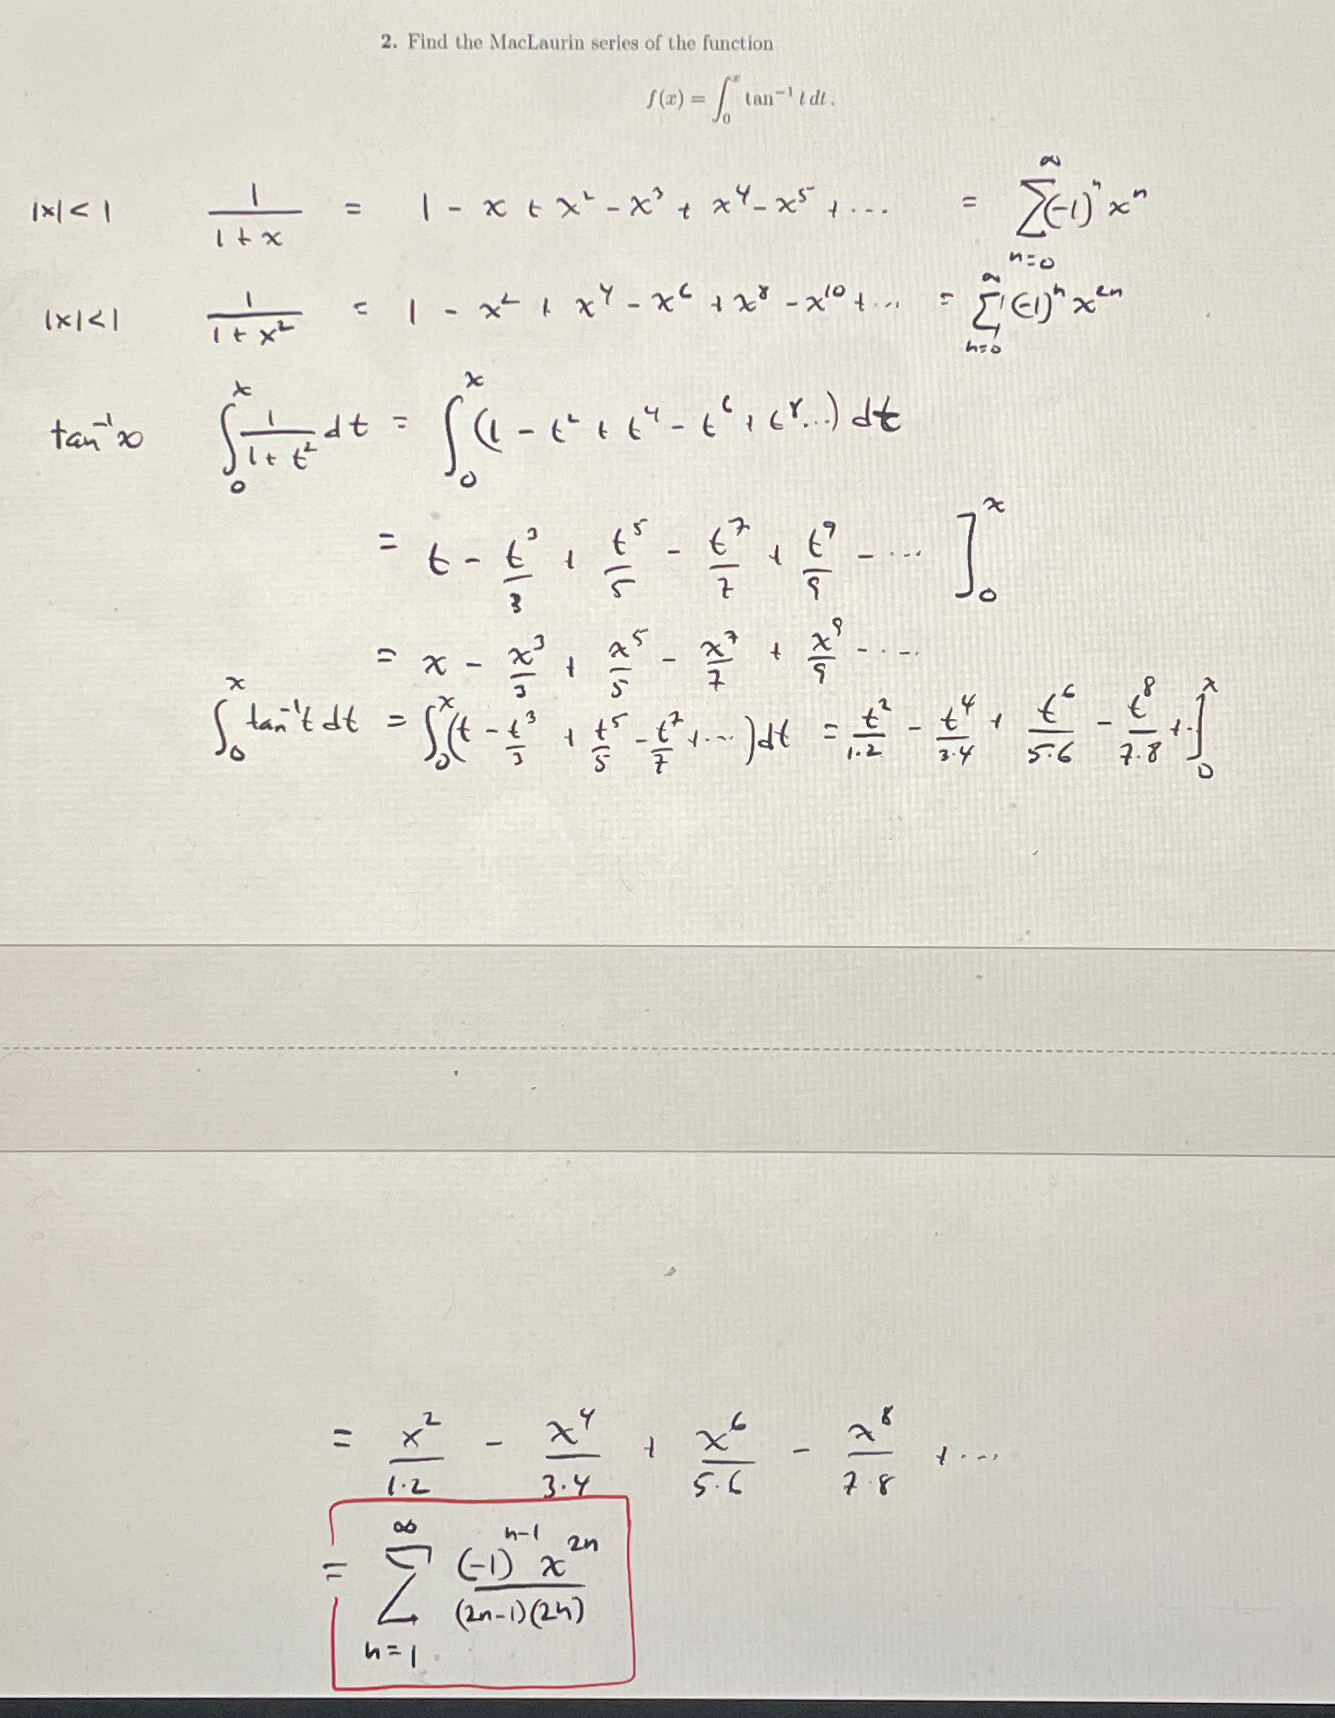 2. Find the MacLaurin series of the function
f(x) = ∫₀ˣ tan⁻¹ t dt.
|x| < 1   1/(1 + x) = 1 - x + x² - x³ + x⁴ - x⁵ + ... = ∑_{n=0}^{∞} (-1)ⁿ xⁿ
|x| < 1   1/(1 + x²) = 1 - x² + x⁴ - x⁶ + x⁸ - x¹⁰ + ... = ∑_{n=0}^{∞} (-1)ⁿ x²ⁿ
tan⁻¹x   ∫₀ˣ 1/(1 + t²) dt = ∫₀ˣ (1 - t² + t⁴ - t⁶ + t⁸...) dt
= t - t³/3 + t⁵/5 - t⁷/7 + t⁹/9 - ... ]₀ˣ
= x - x³/3 + x⁵/5 - x⁷/7 + x⁹/9 - ....
∫₀ˣ tan⁻¹t dt = ∫₀ˣ (t - t³/3 + t⁵/5 - t⁷/7 + ...) dt = t²/(1·2) - t⁴/(3·4) + t⁶/(5·6) - t⁸/(7·8) + .. ]₀ˣ
= x²/(1·2) - x⁴/(3·4) + x⁶/(5·6) - x⁸/(7·8) + ...
= ∑_{n=1}^{∞} (-1)ⁿ⁻¹ x²ⁿ/((2n-1)(2n))